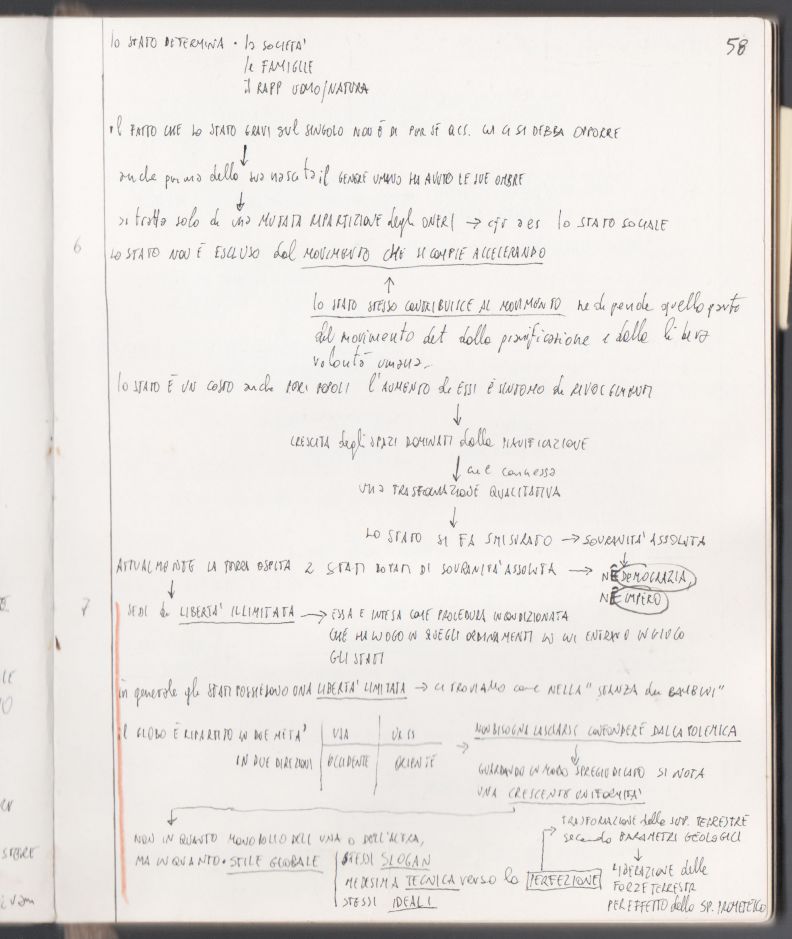 58
lo STATO DETERMINA · la SOCIETA'
le FAMIGLIE
il RAPP UOMO/NATURA
il FATTO CHE LO STATO GRAVI sul SINGOLO NON È DI PER SÉ QCS. CUI CI SI DEBBA OPPORRE
anche prima della sua nascita il GENERE UMANO HA AVUTO LE SUE OMBRE
si tratta solo di una MUTATA RIPARTIZIONE degli ONERI → cfr ad es LO STATO SOCIALE
6 LO STATO NON È ESCLUSO dal MOVIMENTO CHE SI COMPIE ACCELERANDO
lo STATO STESSO CONTRIBUISCE AL MOVIMENTO ne dipende quella parte
del movimento det dalla pianificazione e dalla libera
volontà umana
lo STATO È UN COSTO anche PER I POPOLI l'AUMENTO di ESSI È SINTOMO di RIVOLGIMENTI
CRESCITA degli SPAZI DOMINATI dalla PIANIFICAZIONE
cui è connessa
una TRASFORMAZIONE QUALITATIVA
LO STATO SI FA SMISURATO → SOVRANITA' ASSOLUTA
ATTUALMENTE LA TERRA OSPITA 2 STATI DOTATI DI SOVRANITA' ASSOLUTA → NÈ DEMOCRAZIA
NÈ IMPERO
7 SEDI di LIBERTA' ILLIMITATA → ESSA È INTESA COME PROCEDURA INCONDIZIONATA
CHE HA LUOGO IN QUEGLI ORDINAMENTI IN CUI ENTRANO IN GIOCO
GLI STATI
in generale gli STATI POSSIEDONO UNA LIBERTA' LIMITATA → CI TROVIAMO come NELLA "STANZA dei BAMBINI"
il GLOBO È RIPARTITO IN DUE META' USA URSS → NON BISOGNA LASCIARSI CONFONDERE DALLA POLEMICA
IN DUE DIREZIONI OCCIDENTE ORIENTE
GUARDANDO IN MODO SPREGIUDICATO SI NOTA
UNA CRESCENTE UNIFORMITA'
NON IN QUANTO MONOPOLIO DELL'UNA O DELL'ALTRA,
MA IN QUANTO · STILE GLOBALE
STESSI SLOGAN
MEDESIMA TECNICA verso la PERFEZIONE
STESSI IDEALI
TRASFORMAZIONE della SUP. TERRESTRE
secondo PARAMETRI GEOLOGICI
LIBERAZIONE delle
FORZE TERRESTRI
PER EFFETTO dello SP. PROMETEICO